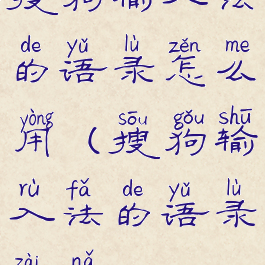 搜狗输入法
de yǔ lù zěn me
的语录怎么
yòng sōu gǒu shū
用（搜狗输
rù fǎ de yǔ lù
入法的语录
zài nǎ